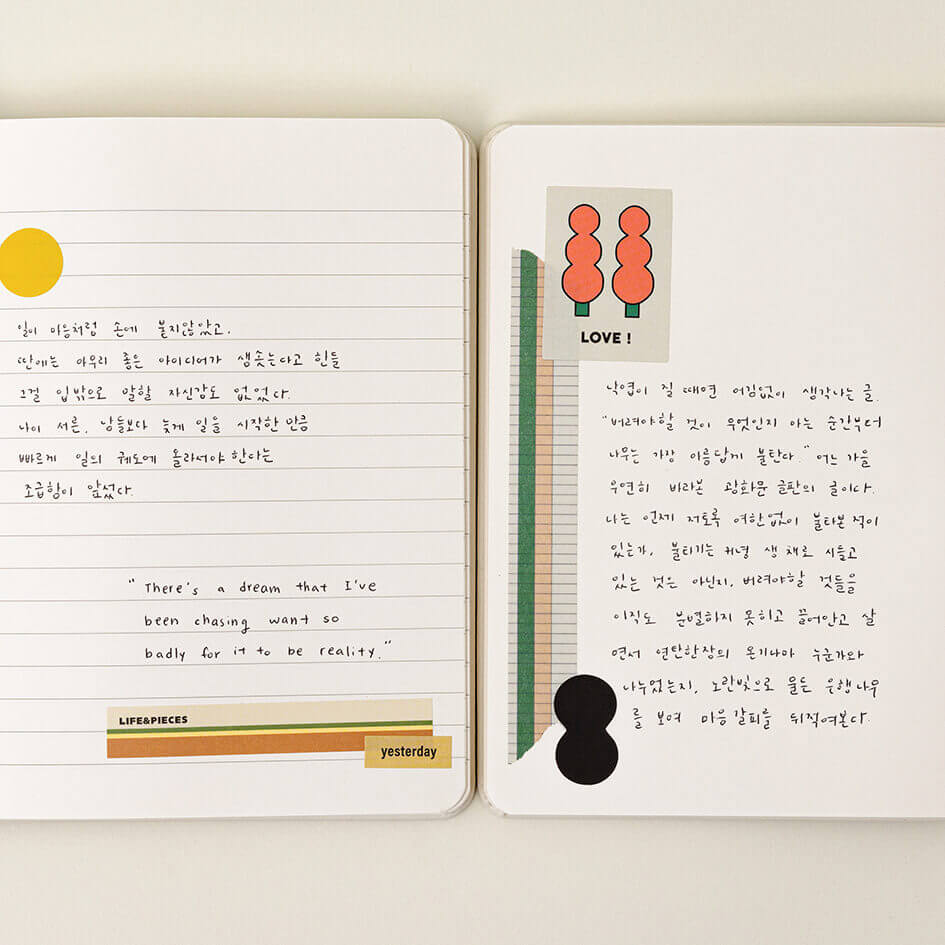 일이 마음처럼 손에 붙지않았고.
딴에는 아무리 좋은 아이디어가 샘솟는다고 한들
그걸 입밖으로 말할 자신감도 없었다.
나이 서른, 남들보다 늦게 일을 시작한 만큼
빠르게 일의 궤도에 올라서야 한다는
조급함이 앞섰다.
"There's a dream that I've
been chasing want so
badly for it to be reality."
LIFE&PIECES
yesterday
LOVE !
낙엽이 질 때면 어김없이 생각나는 글.
"버려야할 것이 무엇인지 아는 순간부터
나무는 가장 아름답게 불탄다." 어느 가을
우연히 바라본 광화문 글판의 글이다.
나는 언제 저토록 여한없이 불타본 적이
있는가, 불타기는 커녕 생 채로 시들고
있는 것은 아닌지, 버려야할 것들을
아직도 분별하지 못하고 끌어안고 살
면서 연탄한장의 온기나마 누군가와
나누었는지, 노란빛으로 물든 은행나무
를 보며 마음갈피를 뒤적여본다.